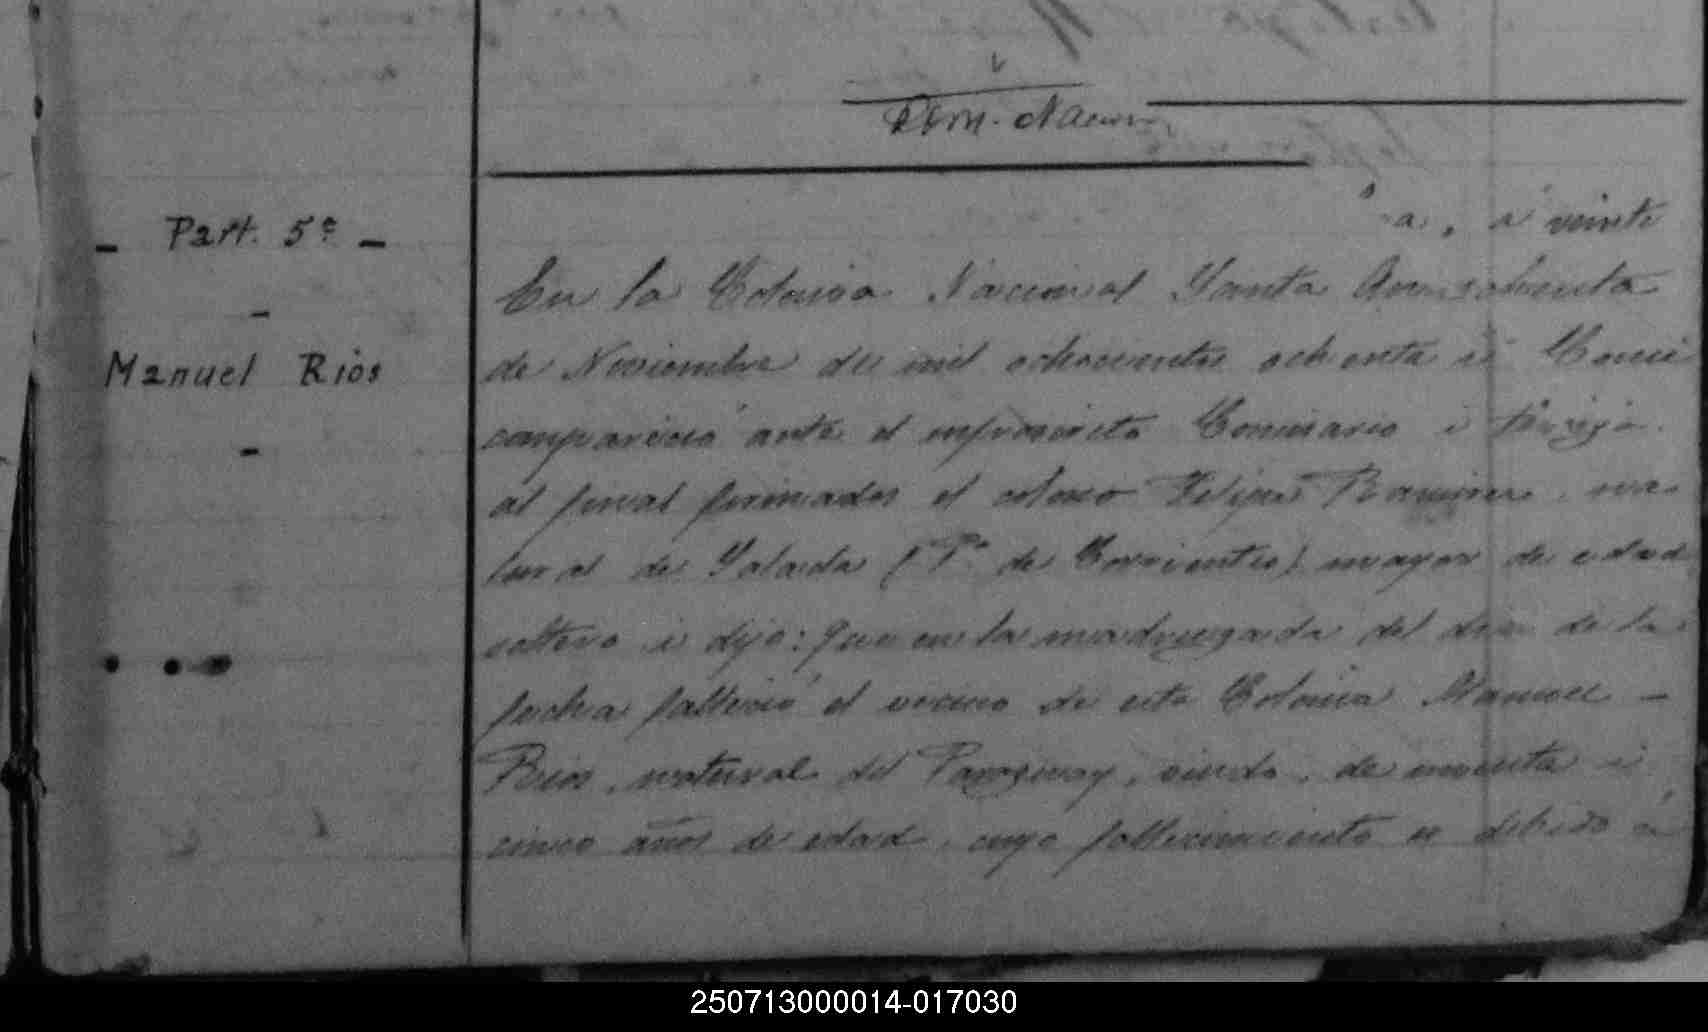 Com. Nacion
Part. 5ª
Manuel Rios
a, á veinte
En la Colonia Nacional Santa Ana
de Noviembre de mil ochocientos ochenta i
compareció ante el infrascrito Comisario i
al final firmados el colono Felipe Ramirez, na-
tural de Salada (Pª de Corrientes) mayor de edad
soltero i dijo: que en la madrugada del dia de la
fecha falleció el vecino de esta Colonia Manuel -
Rios, natural del Paraguay, viudo, de i
cinco años de edad, cuyo fallecimiento es debido á
250713000014-017030